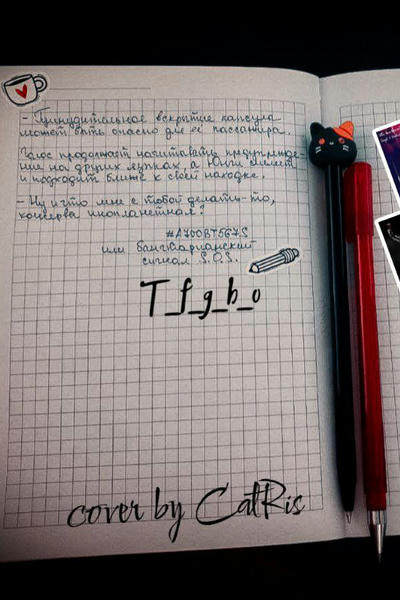 - Принудительное вскрытие капсулы
может быть опасно для её пассажира.
Голос продолжает начитывать предупрежде-
ние на других языках, а Юнги
и подходит ближе к своей находке.
- Ну и что мне с тобой делать-то,
консерва инопланетная?
#A700BT567S
или бангкарианский
сигнал S.O.S.
T_f_g_b_o
cover by CatRis